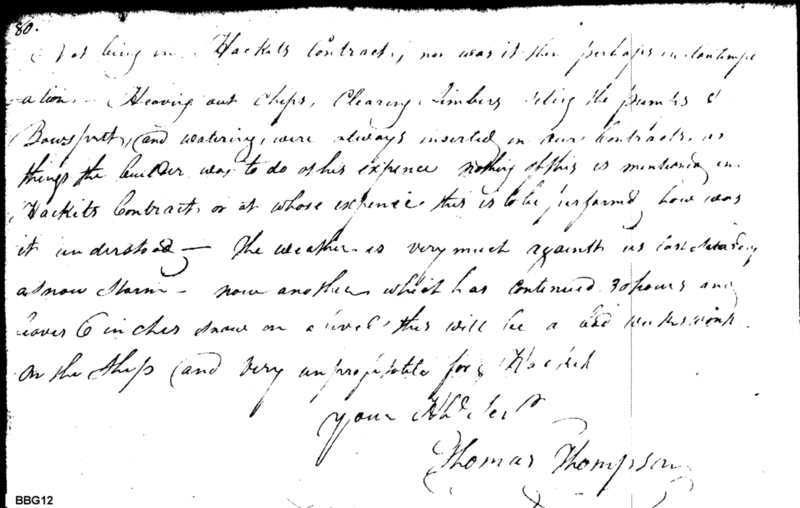 80.
Not being in Hackets Contract, nor was it then perhaps in Contempl
ation. Heaving out Chips, Clearing timbers the pumps &
Bowsprit, and watering, were always inserted in our Contracts, as
things the builder was to do at his expence nothing of this is mentioned in
Hackets Contract, or at whose expence this is to be performed, how was
it understood — The weather is very much against us last Saturday
a snow storm — now another which has continued 30 hours and
leaves 6 inches snow on a level this will be a bad weeks work
on the Ship and very unprofitable for Hacket
your Hbl Sert
Thomas Thompson
BBG12